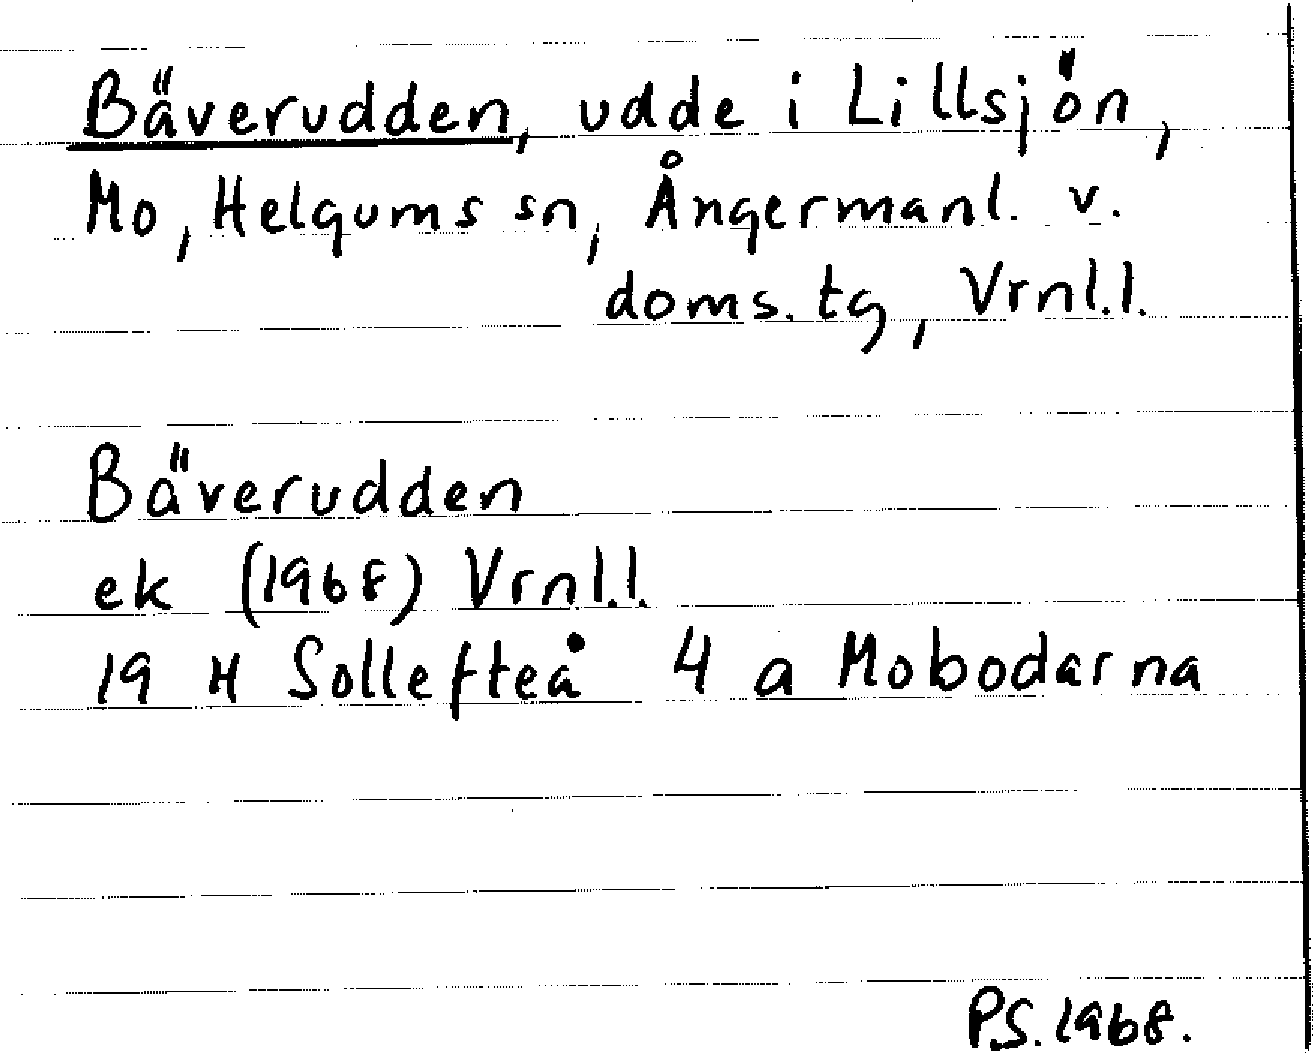 Bäverudden, udde i Lillsjön,
Mo, Helgums sn, Ångermanl. v.
doms. tg, Vrnl.l.
Bäverudden
ek (1968) Vrnl.l.
19 H Sollefteå 4 a Mobodarna
P.S. 1968.